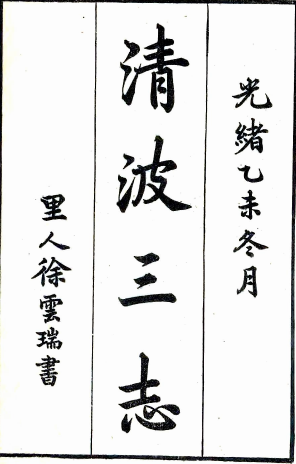 光緒乙未冬月
清波三志
里人徐雲瑞書